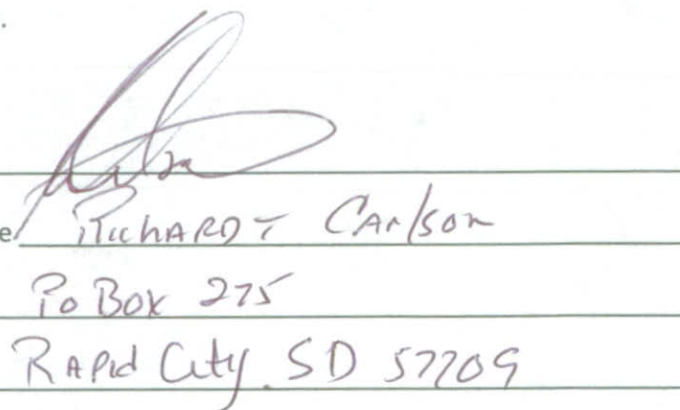 e Richard T Carlson
PO Box 275
Rapid City SD 57709